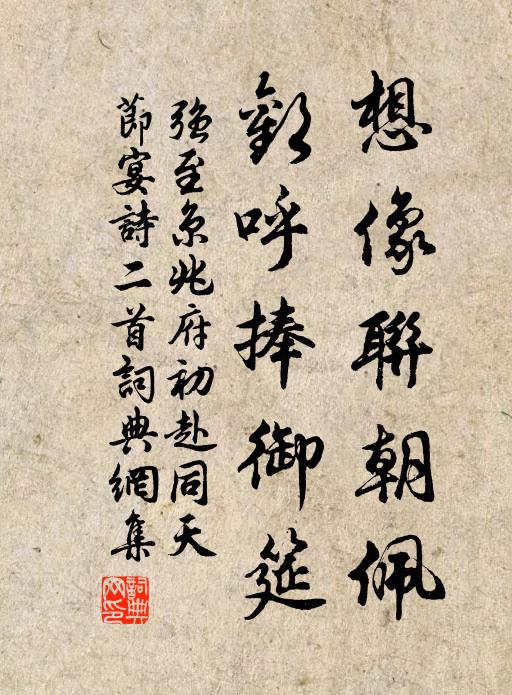 想像聯朝佩
歡呼捧御筵
強至京兆府初赴同天
節宴詩二首詞典網集
詞典
网印